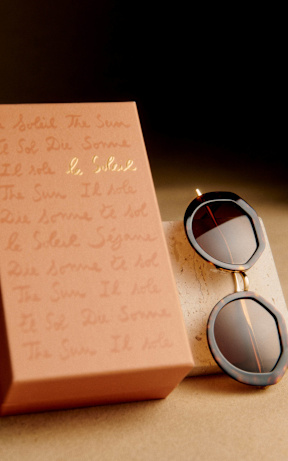 Soleil The Sun
El Sol Die Sonne
Il sole le Soleil
The Sun Il sole
Die Sonne El sol
le Soleil Sézane
Die Sonne El sol
The Sun Il sole
El Sol Die Sonne
The Sun Il sole